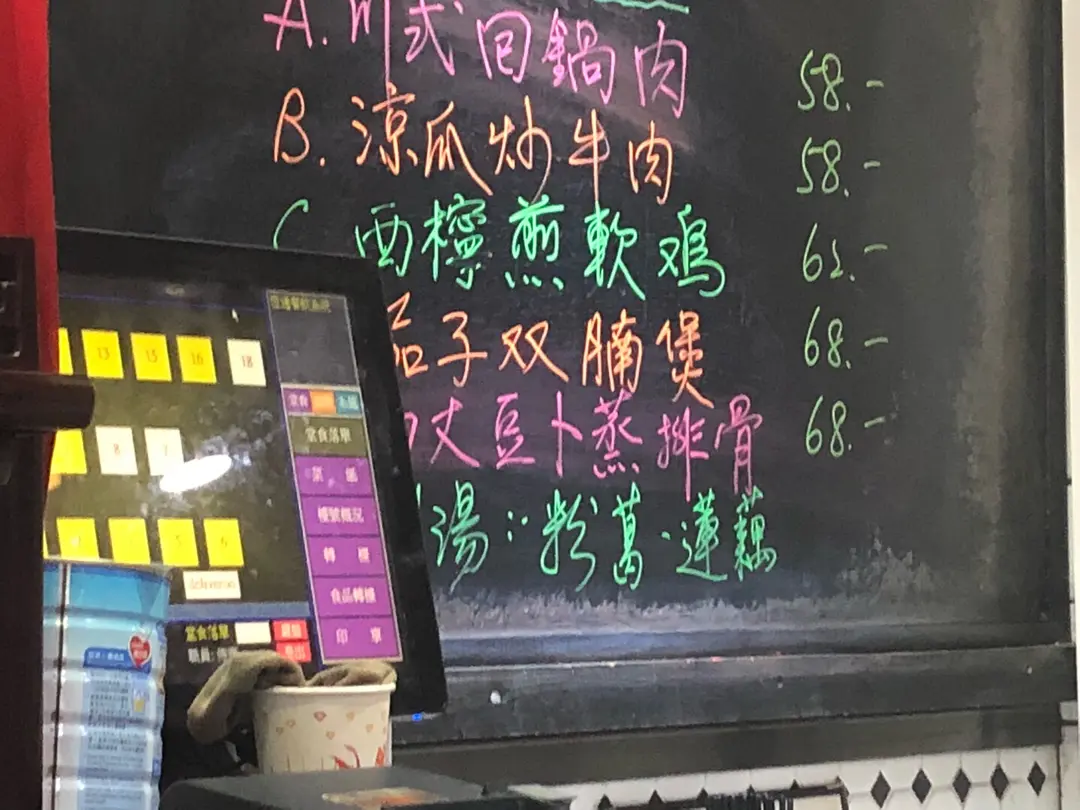 A. 川式回鍋肉 58.-
B. 涼瓜炒牛肉 58.-
C 西檸煎軟鸡 62.-
茄子双腩煲 68.-
豆卜蒸排骨 68.-
湯：粉葛·蓮藕
13 15 16 18
8 7
5 6
堂食
堂食落單
檯號概況
轉 檯
食品轉檯
印 單
堂食落單
職員: